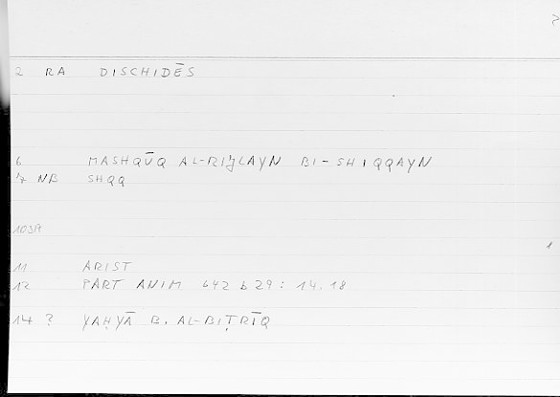 2 RA DISCHIDĒS
6 MASHQŪQ AL-RIJLAYN BI-SHIQQAYN
7 NB SHQQ
11 ARIST
12 PART ANIM 642 b 29: 14.18
14 ? YAḤYĀ B. AL-BIṬRĪQ